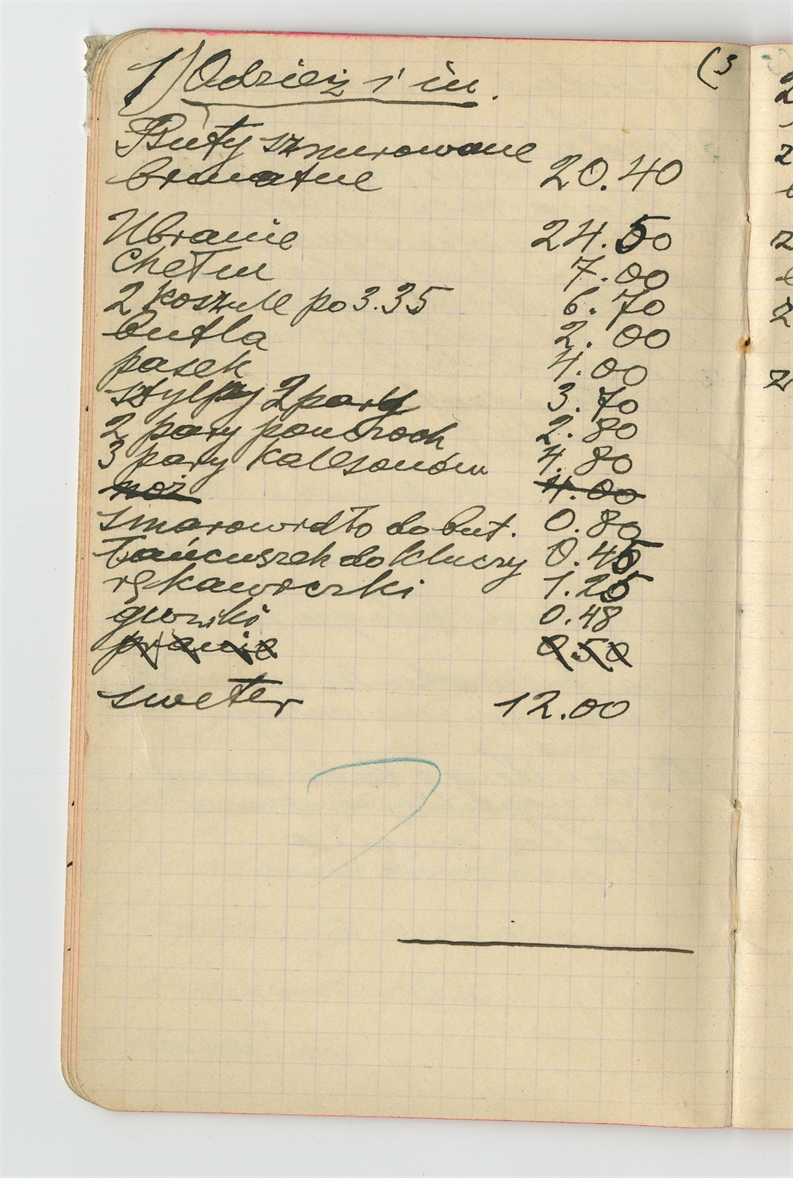 (3
1) Odzież i in.
Buty sznurowane
brunatne 20.40
Ubranie 24.50
Chełm 7.00
2 koszule po 3.35 6.70
Butla 2.00
pasek 4.00
sztylpy 2 pary 3.70
2 pary pończoch 2.80
3 pary kalesonów 4.80
nóż 4.00
smarowidło do but. 0.80
Łańcuszek do kluczy 0.45
rękawiczki 1.25
guziki 0.48
pranie 0.50
sweter 12.00